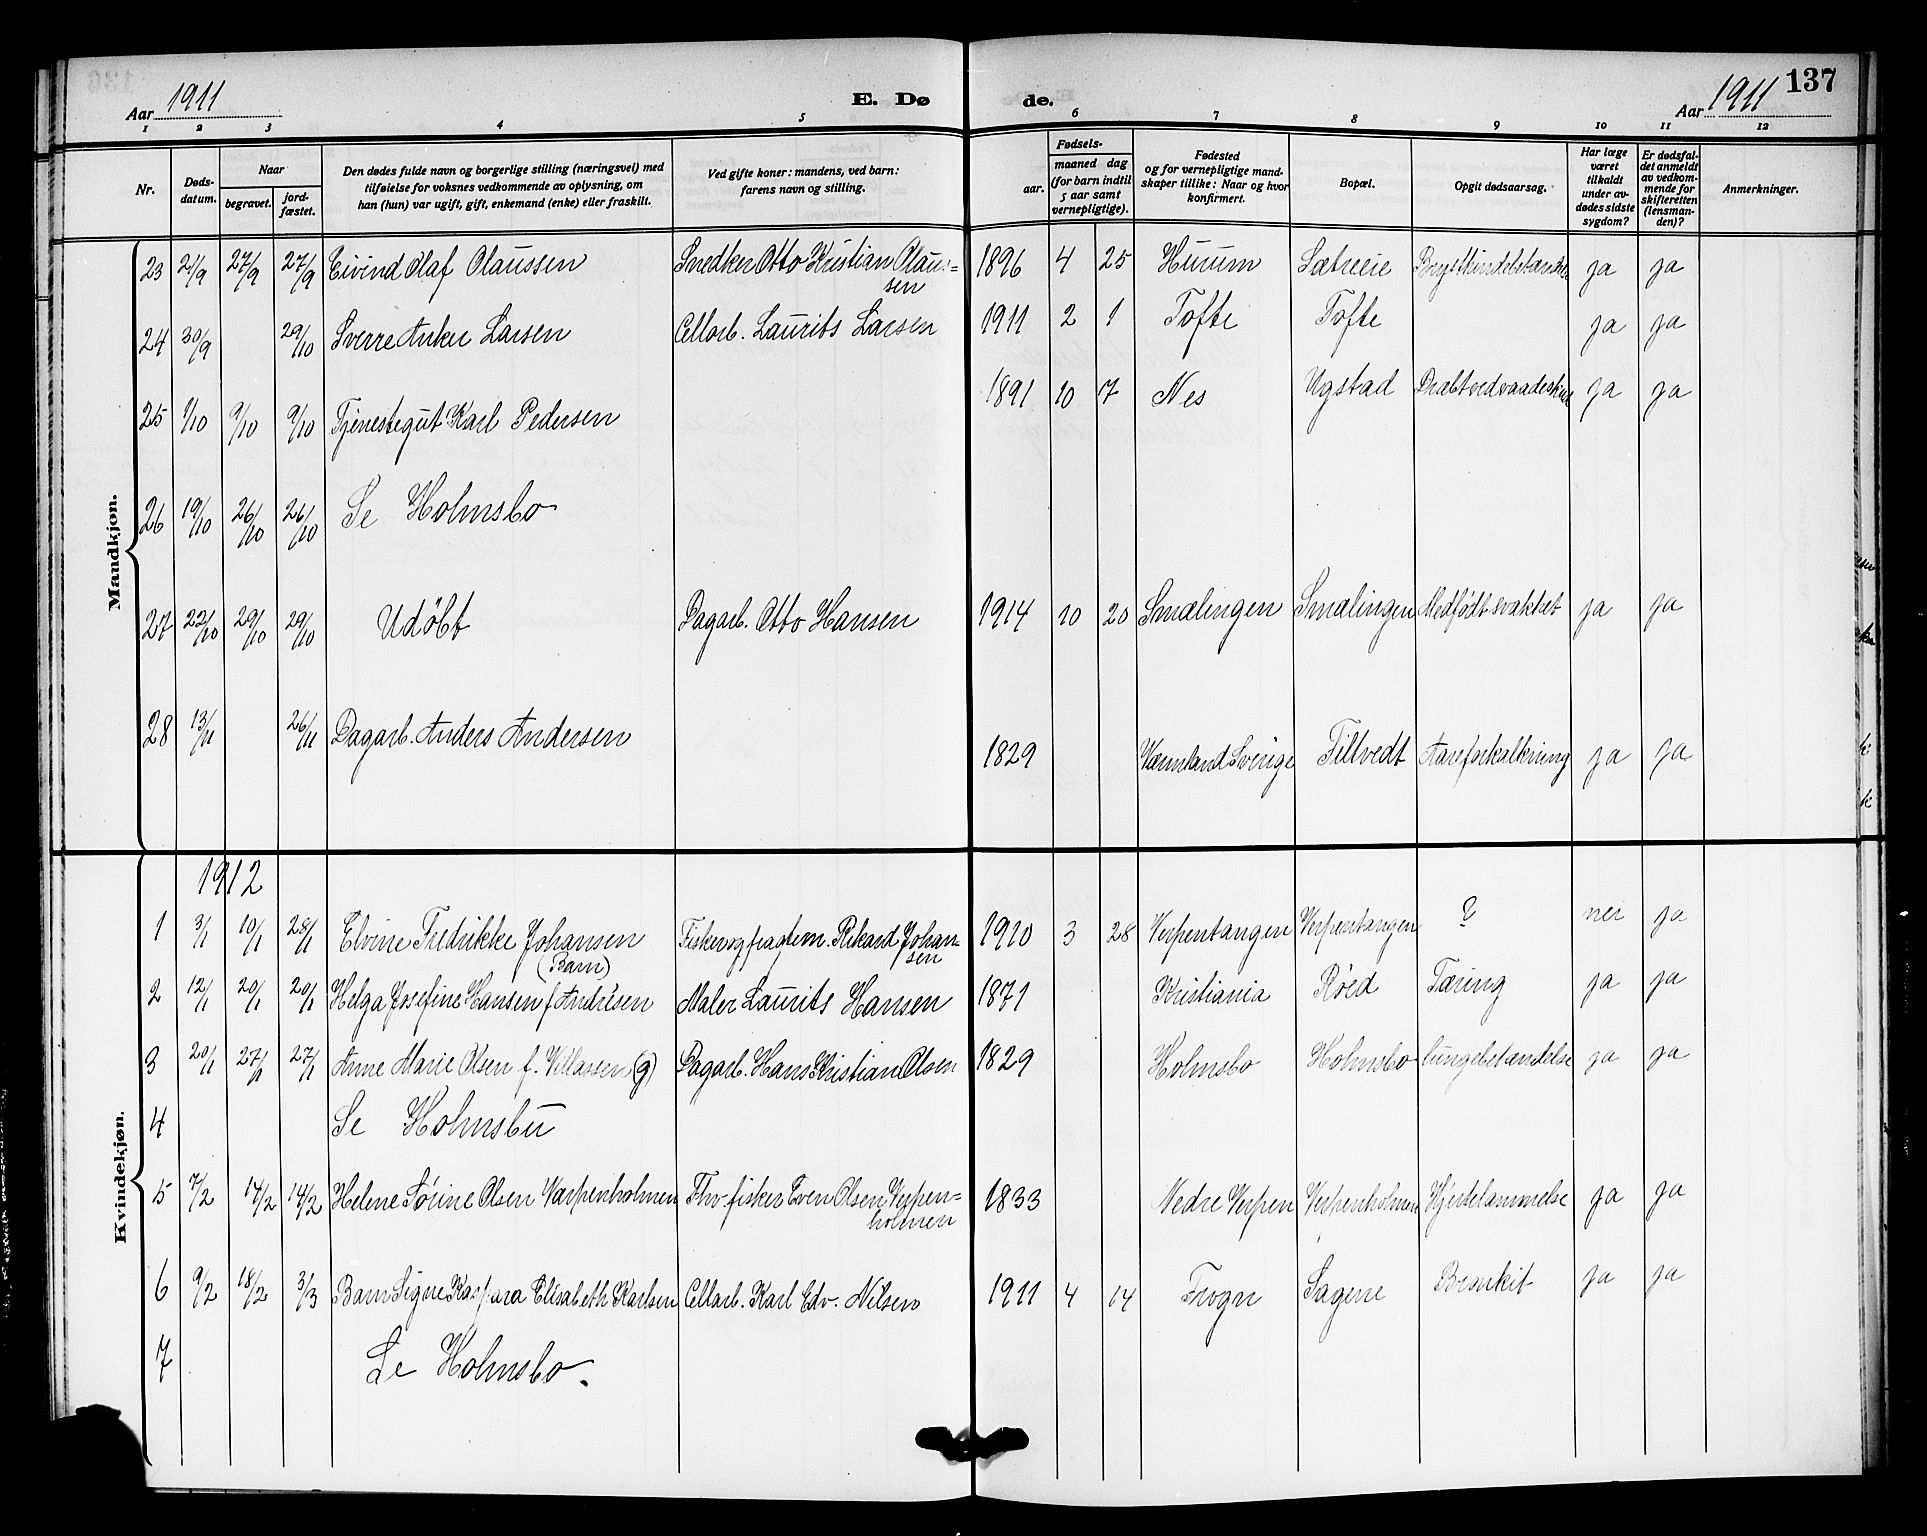 Aar 1911
E. Dø
de.
Aar 1911
137
1 2 3 4 5 6 7 8 9 10 11 12
Nr.
Døds-
datum.
Naar
begravet.
jord-
fæstet.
Den dødes fulde navn og borgerlige stilling (næringsvei) med
tilføielse for voksnes vedkommende av oplysning, om
han (hun) var ugift, gift, enkemand (enke) eller fraskilt.
Ved gifte koner: mandens, ved barn:
farens navn og stilling.
Fødsels-
aar.
maaned dag
(for barn indtil
5 aar samt
vernepligtige).
Fødested
og for vernepligtige mand-
skaper tillike: Naar og hvor
konfirmert.
Bopæl.
Opgit dødsaarsag.
Har læge
været
tilkaldt
under av-
dødes sidste
sygdom?
Er dødsfal-
det anmeldt
av vedkom-
mende for
skifteretten
(lensman-
den)?
Anmerkninger.
Mandkjøn.
23 21/9 27/9 27/9 Eivind Olaf Olaussen Snedker Otto Kristian Olaus= 1896 4 25 Hurum Sætreeie ja ja
sen
24 30/9 29/10 Sverre Anker Larsen Cellarb. Laurits Larsen 1911 2 1 Tofte Tofte ja ja
25 1/10 9/10 9/10 Tjenestegut Karl Pedersen 1891 10 7 Nes Ugstad Dræbt ved vaadeskud ja ja
26 19/10 26/10 26/10 Se Holmsbo
27 22/10 29/10 29/10 Udøbt Dagarb. Otto Hansen 1914 10 20 Smælingen Smælingen Medfødt svakhet ja ja
28 13/11 26/11 Dagarb. Anders Andersen 1829 Værmland Sverige Tiltvedt Aareforkalkning ja ja
Kvindekjøn.
1912
1 3/1 10/1 28/1 Elvine Fredrikke Johansen Fisker og fragtem. Rikard Johan= 1910 3 28 Verpentangen Verpentangen ? nei ja
(Barn) sen
2 12/1 20/1 20/1 Helga Josefine Hansen f. Andrésen Maler Laurits Hansen 1871 Kristiania Røed Tæring ja ja
3 20/1 27/1 27/1 Anne Marie Olsen f. Villassen (g) Dagarb. Hans Kristian Olsen 1829 Holmsbo Holmsbo lungebetændelse ja ja
4 Se Holmsbu
5 7/2 14/2 14/2 Helene Sørine Olsen Værpenholmen Fhv. fisker Even Olsen Verpen= 1833 Nedre Verpen Verpenholmen Hjertelammelse ja ja
holmen
6 9/2 18/2 3/3 Barn Signe Kaspara Elisabeth Karlsen Cellarb. Karl Edv. Nilsen 1911 4 14 Frogn Sagene Bronkit ja ja
7 Se Holmsbo.